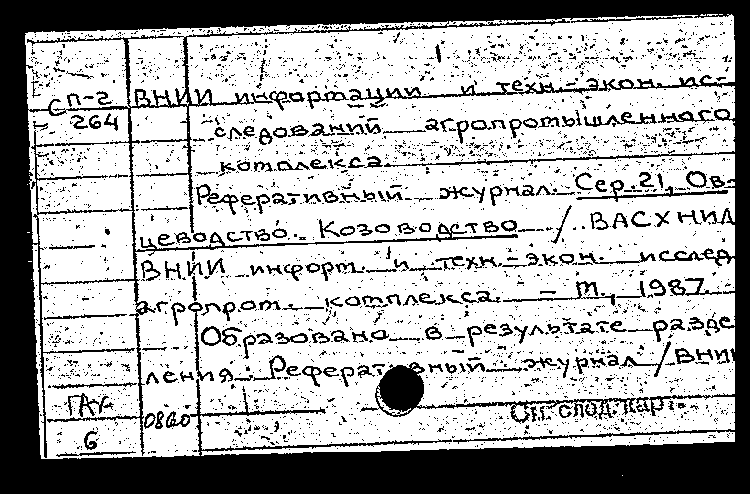 1
Сп-2 ВНИИ информации и техн.-экон. ис-
264 следований агропромышленного
комплекса.
Реферативный журнал. Сер. 21, Ов-
цеводство. Козоводство / ВАСХНИЛ
ВНИИ информ. и техн.-экон. исслед
агропром. комплекса. - М., 1987.
Образовано в результате разде
ления: Реферативный журнал / ВНИИ
6
См. след. карт.